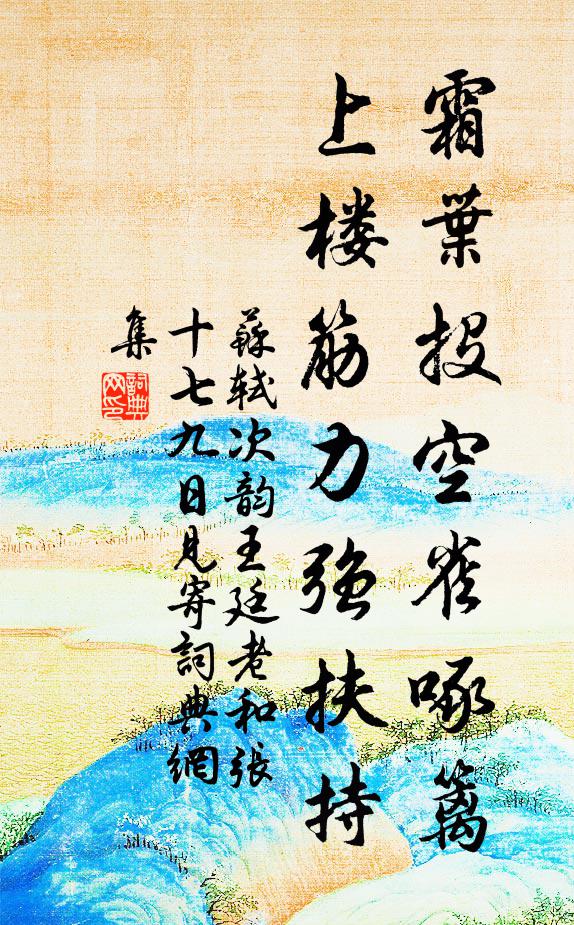 霜葉投空雀啄篱
上楼筋力强扶持
蘇軾次韵王廷老和張
十七九日見寄詞典網
集
詞典
网印